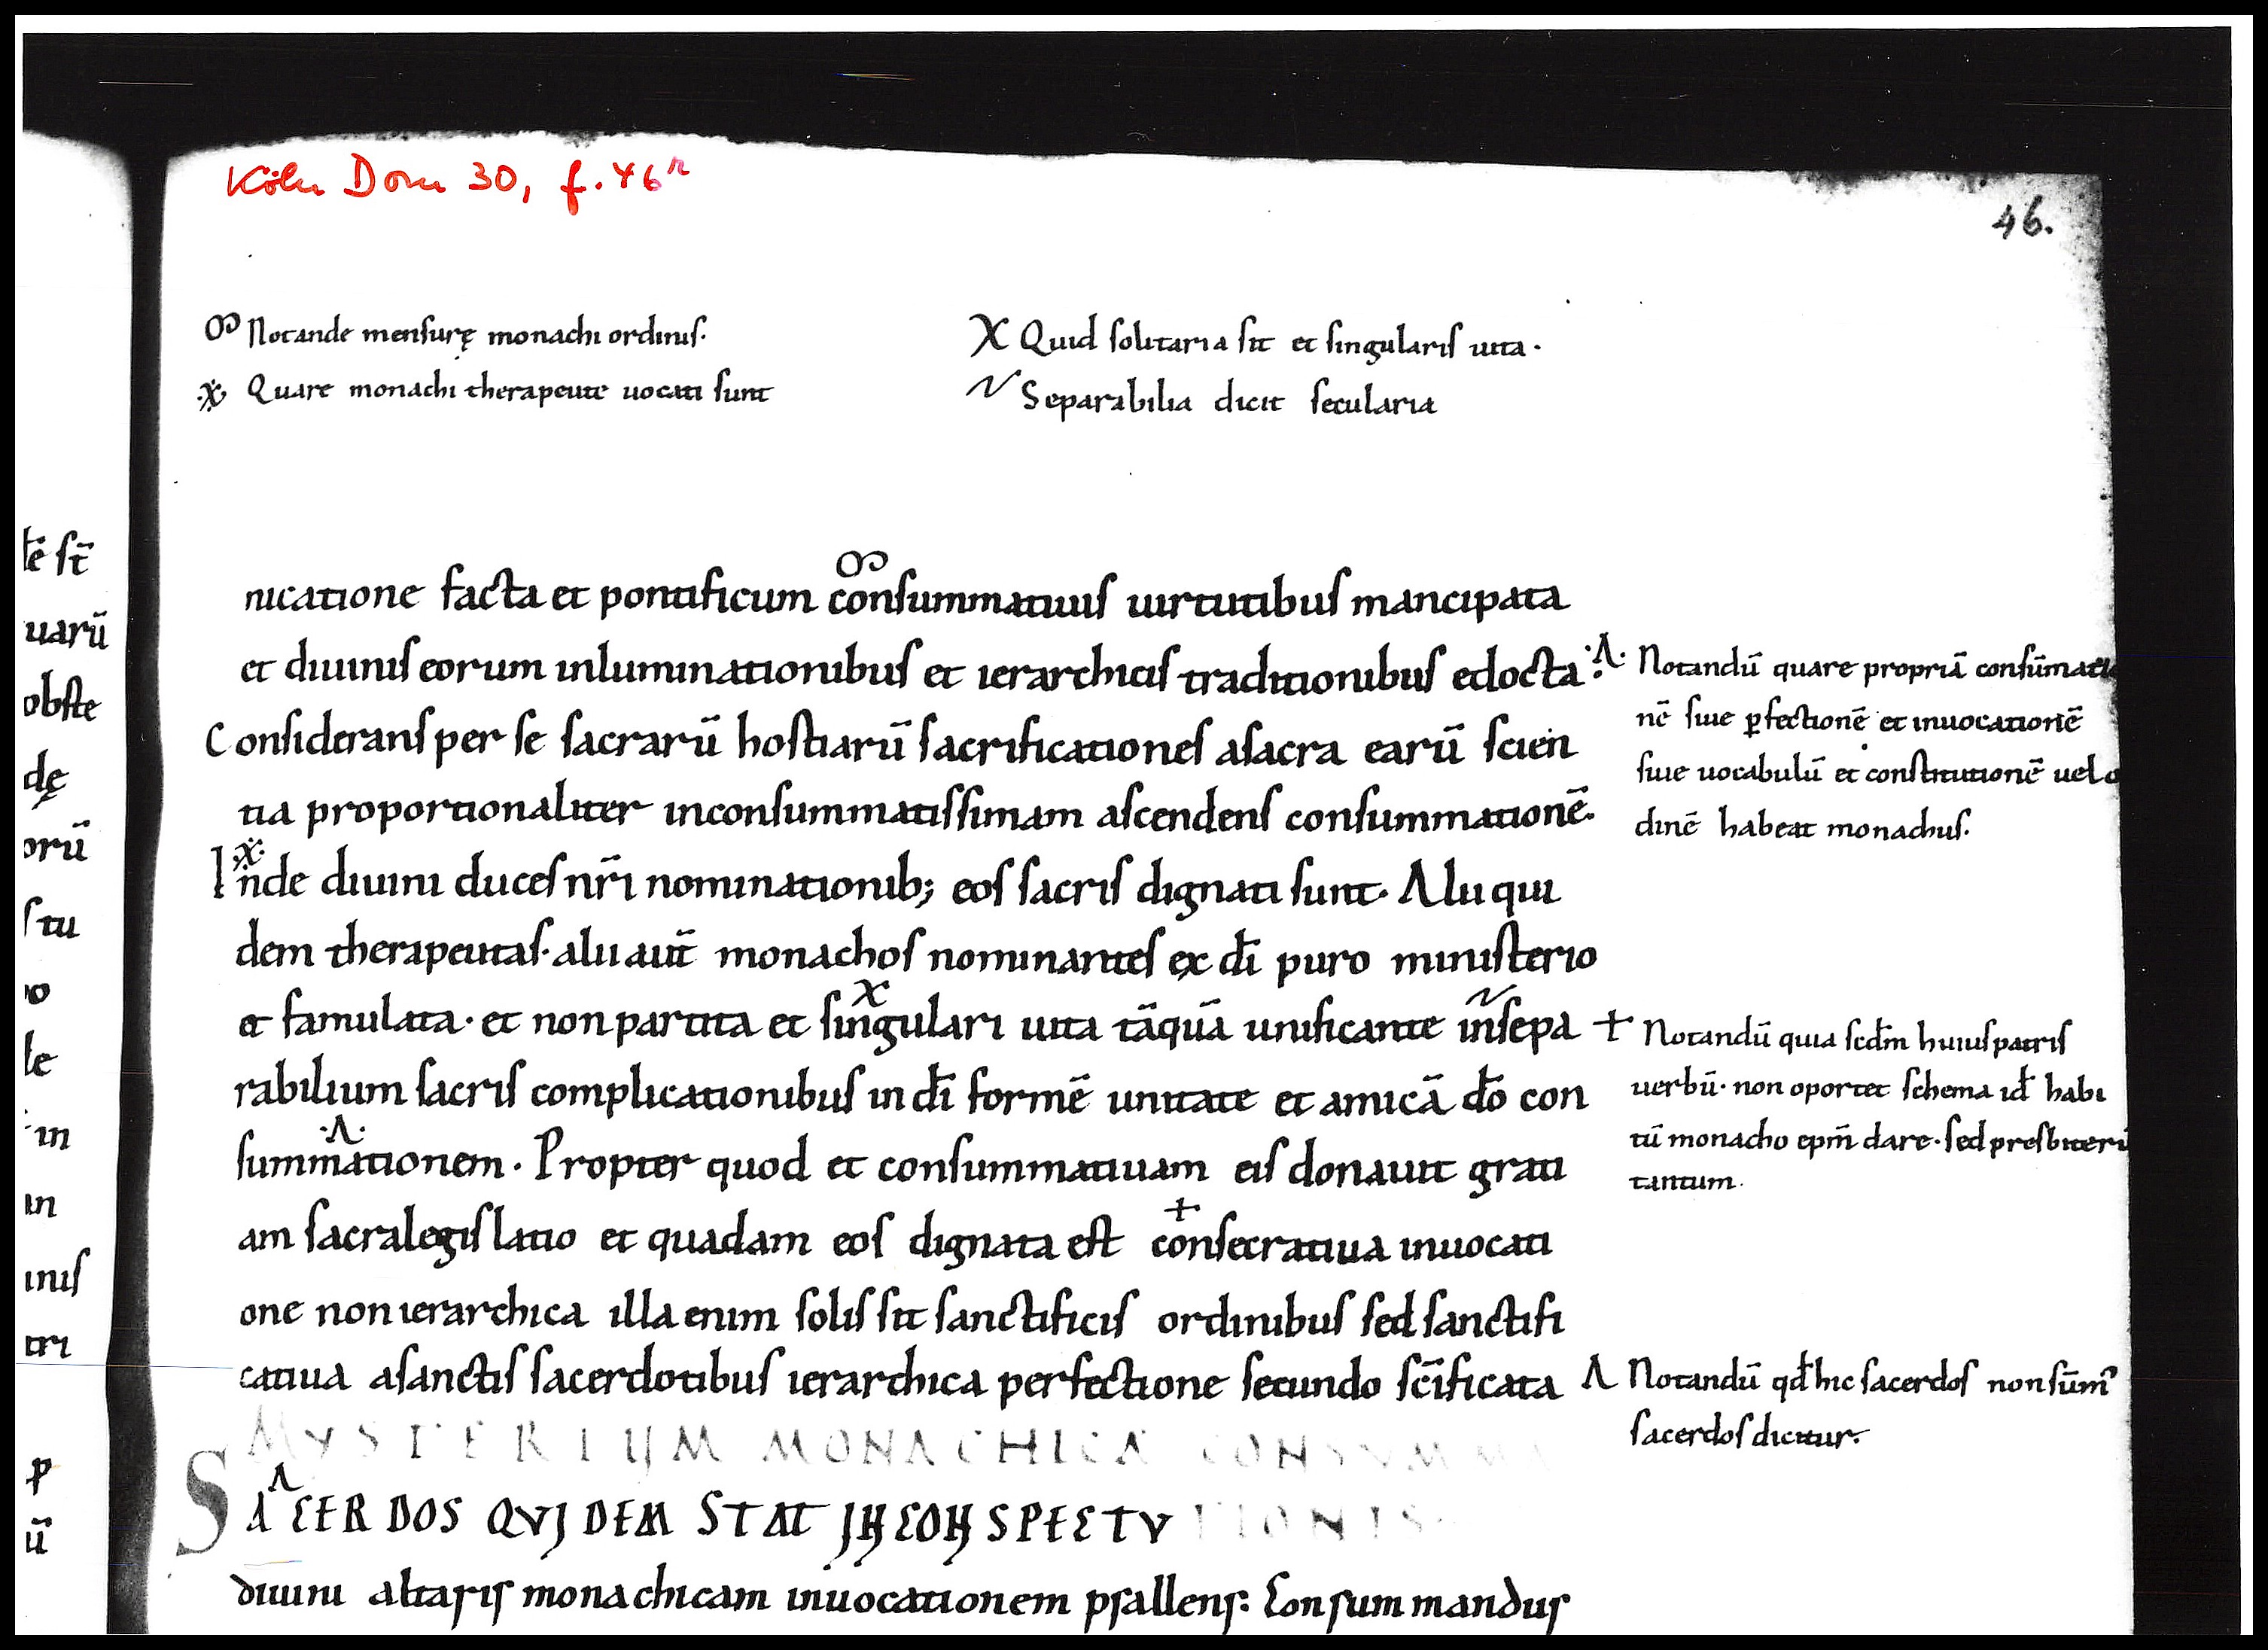 Köln Dom 30, f. 46r
46.
Notande mensurę monachi ordinis.
Quare monachi therapeute uocati sunt
X Quid solitaria sit et singularis uita.
Separabilia dicit secularia
nicatione facta et pontificum consummatiuis uirtutibus mancipata
et diuinis eorum inluminationibus et ierarchicis traditionibus edocta
Considerans per se sacrarū hostiarū sacrificationes asacra earū scien
tia proportionaliter inconsummatissimam ascendens consummationē.
Inde diuini duces nr̄i nominationib; eos sacris dignati sunt. Alii qui
dem therapeutas. alii aut̄ monachos nominantes ex dī puro ministerio
et famulata. et non partita et singulari uita tāquā unificante insepa
rabilium sacris complicationibus in dī formē unitate et amicā dō con
summationem. Propter quod et consummatiuam eis donauit grati
am sacra legislatio et quadam eos dignata est consecratiua inuocati
one non ierarchica illa enim solis sit sanctificis ordinibus sed sanctifi
catiua asanctis sacerdotibus ierarchica perfectione secundo sc̄ificata
MYSTERIUM MONACHICA CONSUMMA
SACERDOS QVIDEM STAT IN CONSPECTV TIONIS
diuini altaris monachicam inuocationem psallens: Consummandus
Notandū quare propriā consūmatio
nē siue ꝑfectionē et inuocationē
siue uocabulū et constitutionē uel o
dinē habeat monachus.
+ Notandū quia scd̄m huius patris
uerbū. non oportet schema id̄ habi
tū monacho ep̄m dare. sed presbiterū
tantum.
Notandū qd̄ hic sacerdos non sūm'
sacerdos dicitur.
lē st̄
uarū
obste
dę
orū
s tu
le
in
in
inis
tri
p
ū